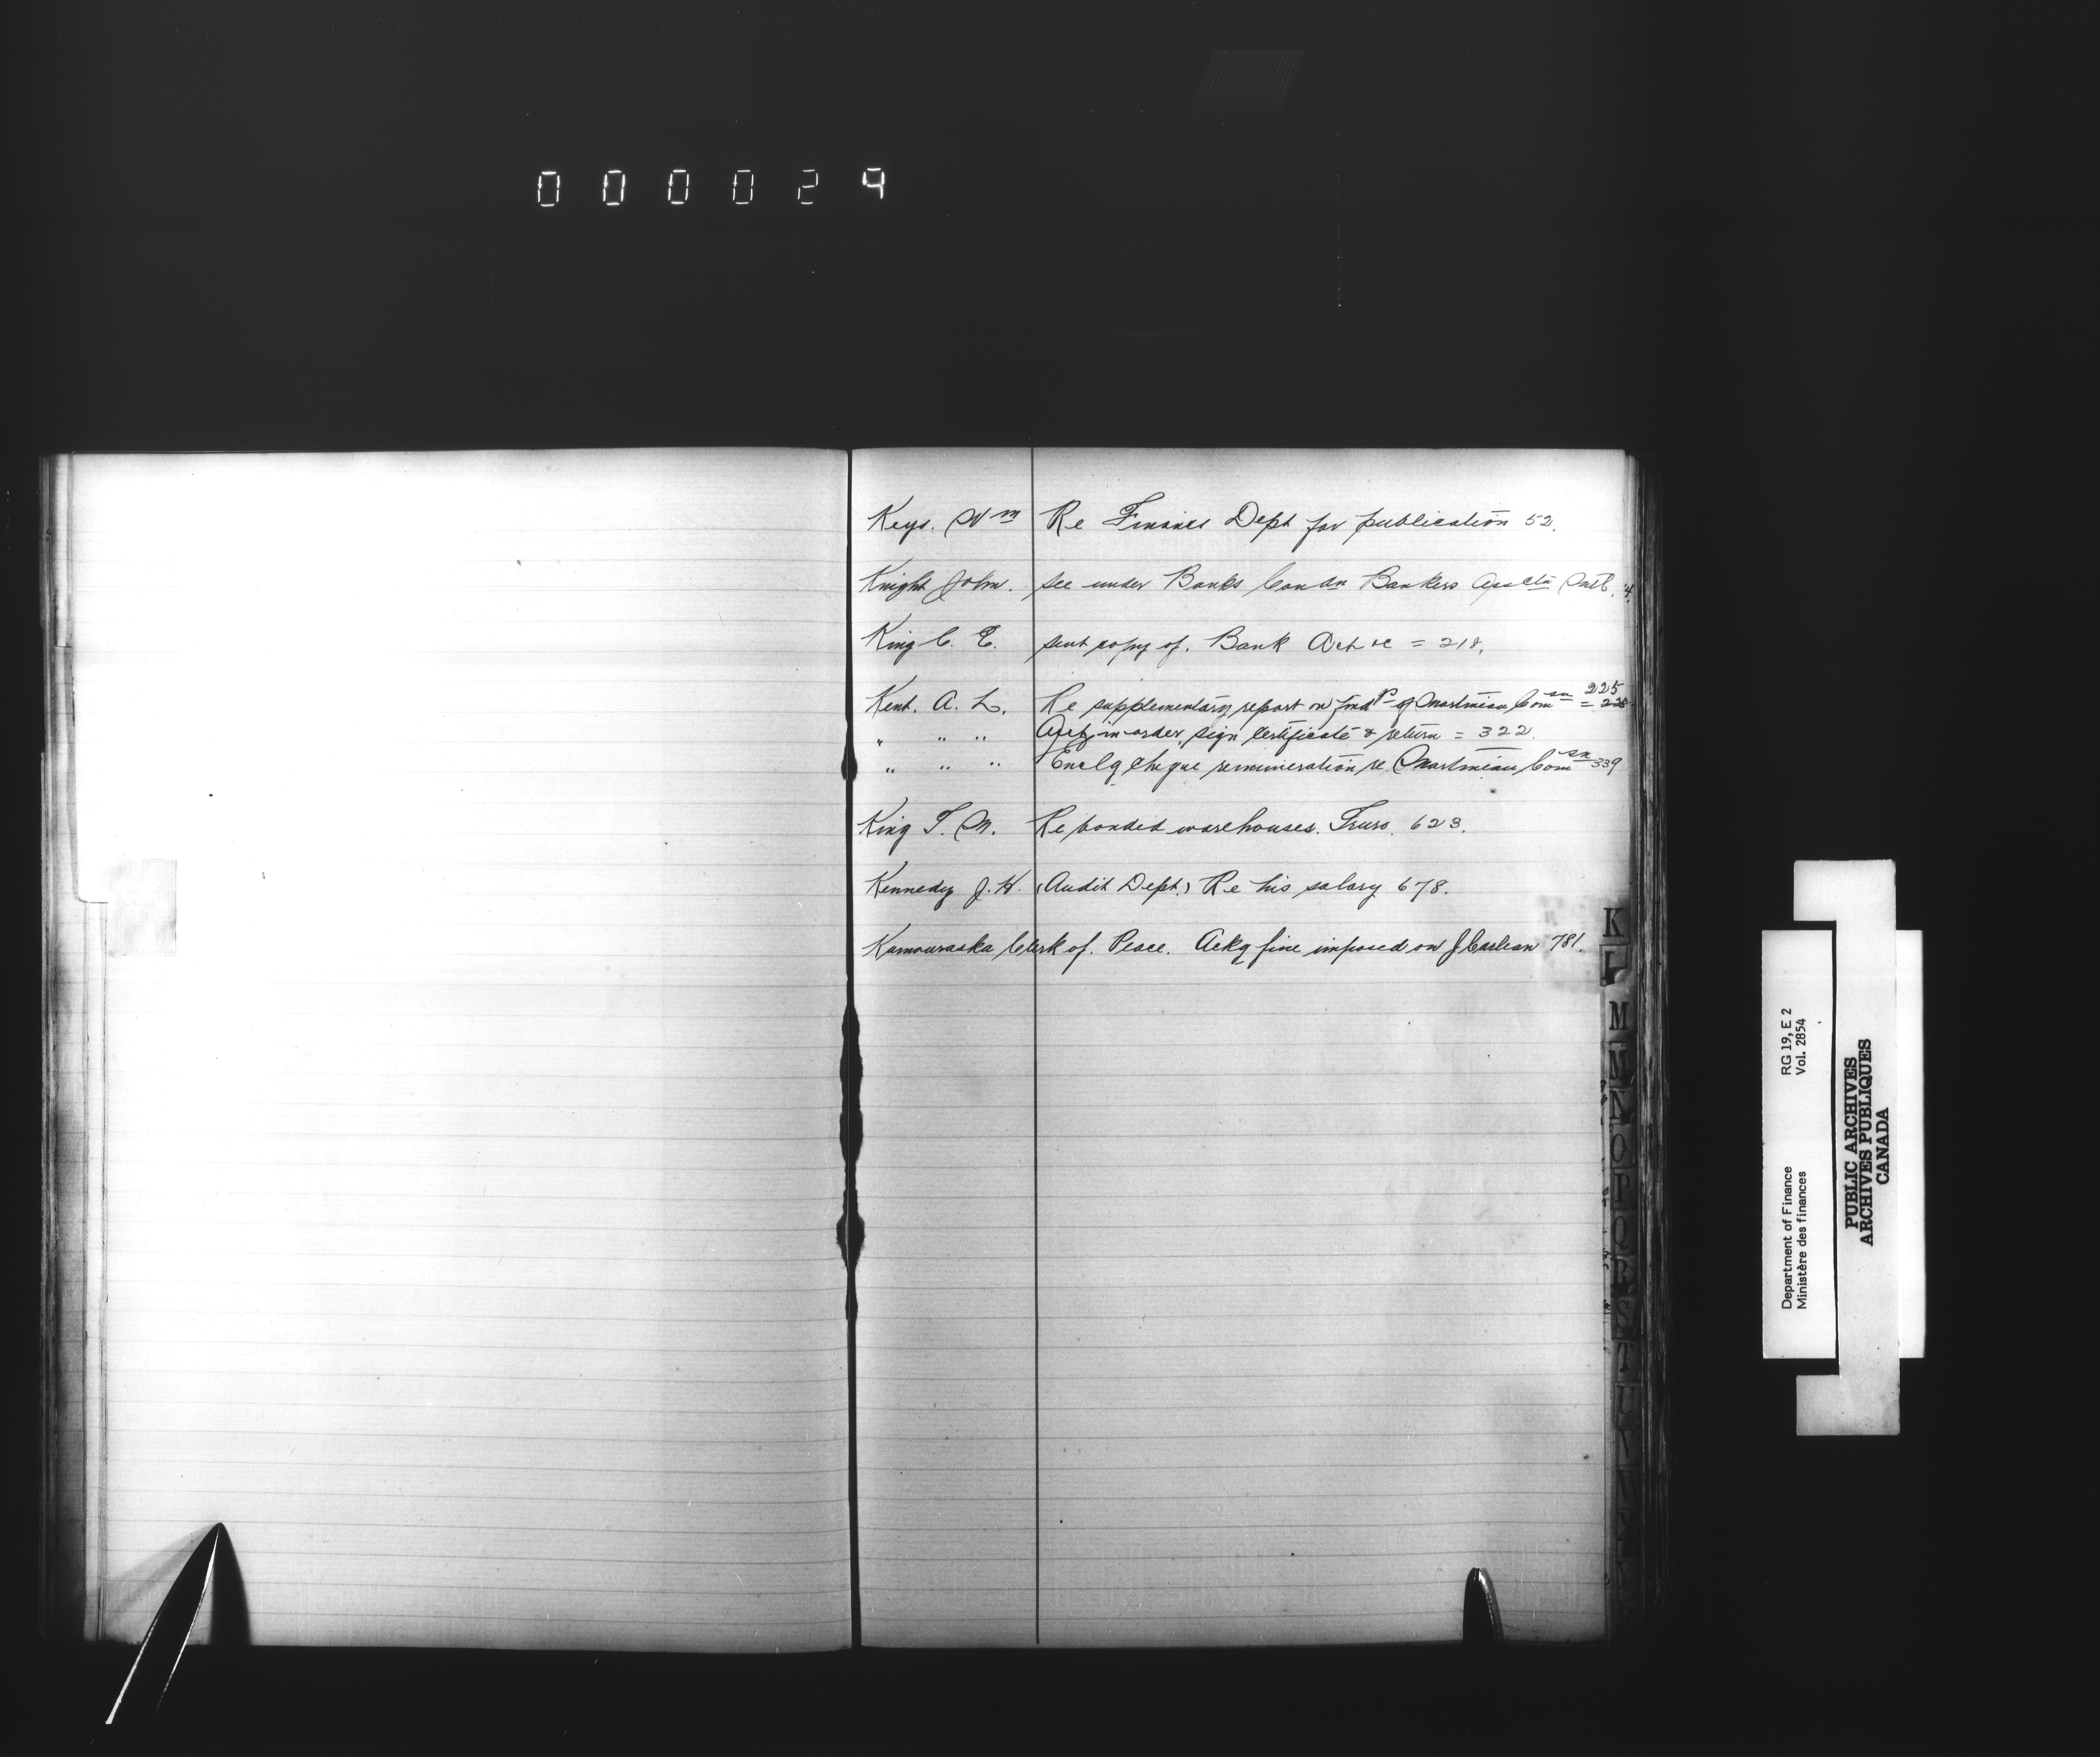 000029
Keys. Wm Re Finance Dept for publication 52.
Knight John. see under Banks Can dn Bankers Assctn
King C. E. sent copy of. Bank Act &c = 218.
Kent. A. L. Re supplementary report on of Martineau Comsn = 225
" " " Acct in order, sign certificate & return = 322.
" " " Enclg cheque remuneration re Martineau Comsn 339
King T. M. Re bonded warehouses. Truro. 623.
Kennedy J. H. (Audit Dept.) Re his salary 678.
Kamouraska Clerk of. Peace. Ackg fine imposed on J 781.
K
L
M
N
O
P
Q
R
S
T
U
Department of Finance RG 19, E 2
Ministère des finances Vol. 2854
PUBLIC ARCHIVES
ARCHIVES PUBLIQUES
CANADA